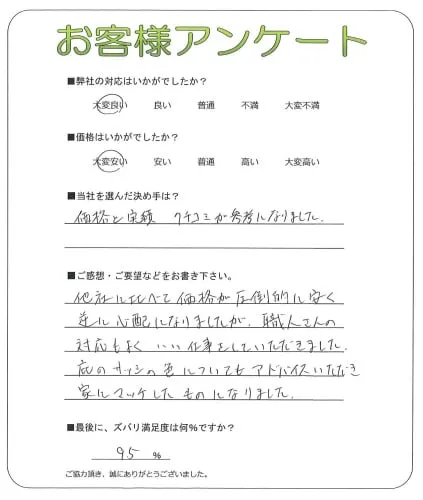 お客様アンケート
■弊社の対応はいかがでしたか?
大変良い 良い 普通 不満 大変不満
■価格はいかがでしたか?
大変安い 安い 普通 高い 大変高い
■当社を選んだ決め手は?
価格と実績 クチコミが参考になりました。
■ご感想・ご要望などをお書き下さい。
他社に比べて価格が圧倒的に安く
逆に心配になりましたが、職人さんの
対応もよく いい仕事をしていただきました。
庇のサッシの色についてもアドバイスいただき
家にマッチしたものになりました。
■最後に、ズバリ満足度は何%ですか?
95 %
ご協力頂き、誠にありがとうございました。